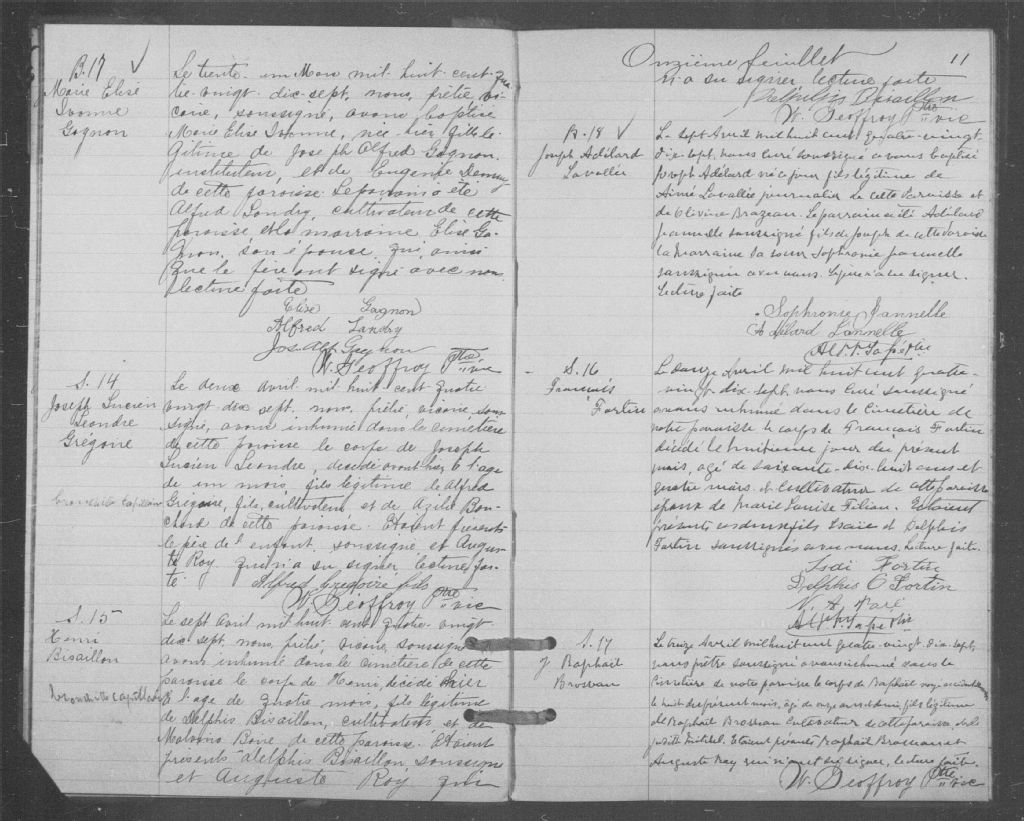 B. 17
Marie Elise
Ivonne
Gagnon
Le trente-un Mars mil huit cent qua-
tre-vingt-dix-sept, nous, prêtre vi-
caire, soussigné, avons baptisé
Marie Elise Ivonne, née hier fille lé-
gitime de Joseph Alfred Gagnon,
instituteur, et de Eugenie
de cette paroisse. Le parrain a été
Alfred Landry, cultivateur de cette
paroisse et la marraine Elise Ga-
gnon, son épouse, qui, ainsi
que le père ont signé avec nous
lecture faite
Elise Gagnon
Alfred Landry
Jos. Alf. Gagnon
W. Geoffroy Ptre vic
S. 14
Joseph Lucien
Léandre
Grégoire
Le deux avril mil huit cent quatre
vingt-dix sept, nous, prêtre, vicaire, sous-
signé, avons inhumé dans le cimetière
de cette paroisse le corps de Joseph
Lucien Léandre, décédé avant hier à l'age
de un mois, fils légitime de Alfred
Grégoire, fils, cultivateur, et de Azilda Bou-
chard de cette paroisse. Etaient présents
le père de l'enfant, soussigné et Augus-
te Roy, qui n'a su signer lecture fai-
te
Alfred Grégoire fils
W. Geoffroy Ptre vic
S. 15
Henri
Bisaillon
bronchite capillaire
Le sept avril mil huit cent quatre-vingt
dix sept, nous, prêtre, vicaire, soussigné
avons inhumé dans le cimetière de cette
paroisse le corps de Henri, décédé hier
à l'age de quatre mois, fils légitime
de Delphis Bisaillon, cultivateur et de
Malvina de cette paroisse. Etaient
présents Delphis Bisaillon soussigné
et Auguste Roy qui
Onzième feuillet 11
n'a su signer lecture faite
Delphis Bisaillon
W. Geoffroy Ptre vic
B. 18
Joseph Adélard
Lavallée
Le sept Avril mil huit cent quatre-vingt
dix-sept, nous curé soussigné avons baptisé
Joseph Adélard né ce jour fils légitime de
Aimé Lavallée journalier de cette paroisse et
de Olivine Brazeau. Le parrain a été Adélard
Jannelle soussigné fils de Joseph de cette paroisse
la marraine sa soeur Sophronie Jannelle
soussignée avec nous. Le père n'a su signer.
Lecture faite
Sophronie Jannelle
Adélard Jannelle
S. 16
Francois
Fortin
Le onze Avril mil huit cent quatre-
vingt-dix-sept, nous curé soussigné
avons inhumé dans le Cimetière de
notre paroisse le corps de Francois Fortin
décédé le huitième jour du présent
mois, agé de soixante-dix-huit ans et
quatre mois. et Cultivateur de cette paroisse
époux de Marie Louise Filion. Etaient
présents ses deux fils Isaie et Delphis
Fortin soussignés avec nous. Lecture faite.
Isaï Fortin
Delphis O Fortin
S. 17
Raphaël
Brosseau
Le treize Avril mil huit cent quatre-vingt dix-sept,
nous prêtre soussigné avons inhumé dans le
Cimetière de notre paroisse le corps de Raphaël
le huit du présent mois, agé de onze ans fils légitime
de Raphaël Brosseau Cultivateur de cette paroisse et de
Judith Michel. Etaient présents Raphaël Brosseau et
Auguste Roy qui n'ont su signer, lecture faite.
W. Geoffroy Ptre vic